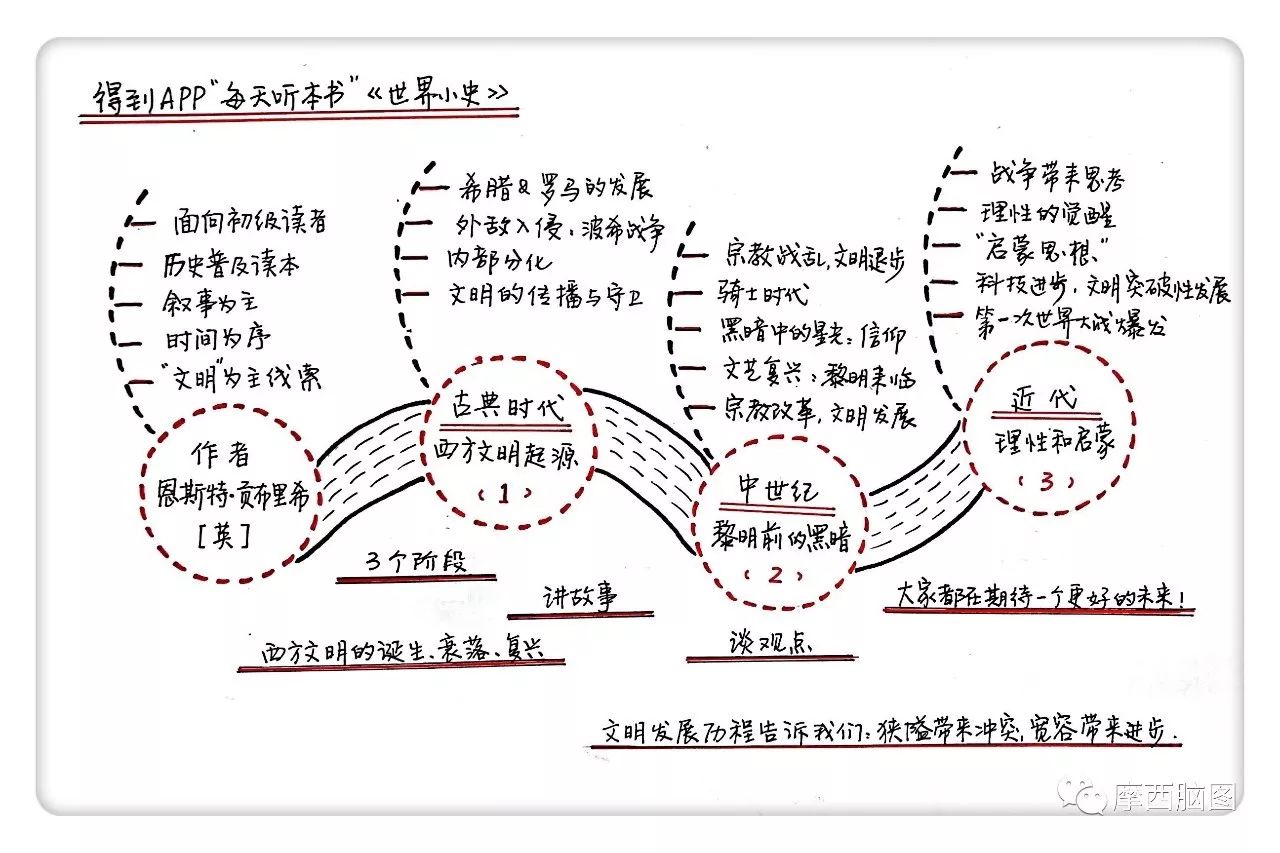 得到APP"每天听本书"《世界小史》
面向初级读者
历史普及读本
叙事为主
时间为序
"文明"为主线索
作者
恩斯特·贡布里希
[英]
希腊&罗马的发展
外敌入侵：波希战争
内部分化
文明的传播与守卫
古典时代
西方文明起源
(1)
宗教战乱,文明退步
骑士时代
黑暗中的星光：信仰
文艺复兴：黎明来临
宗教改革,文明发展
中世纪
黎明前的黑暗
(2)
战争带来思考
理性的觉醒
"启蒙思想"
科技进步,文明突破性发展
第一次世界大战爆发
近代
理性和启蒙
(3)
3个阶段
讲故事
西方文明的诞生、衰落、复兴
谈观点
大家都在期待一个更好的未来!
文明发展历程告诉我们：狭隘带来冲突,宽容带来进步.
摩西脑图